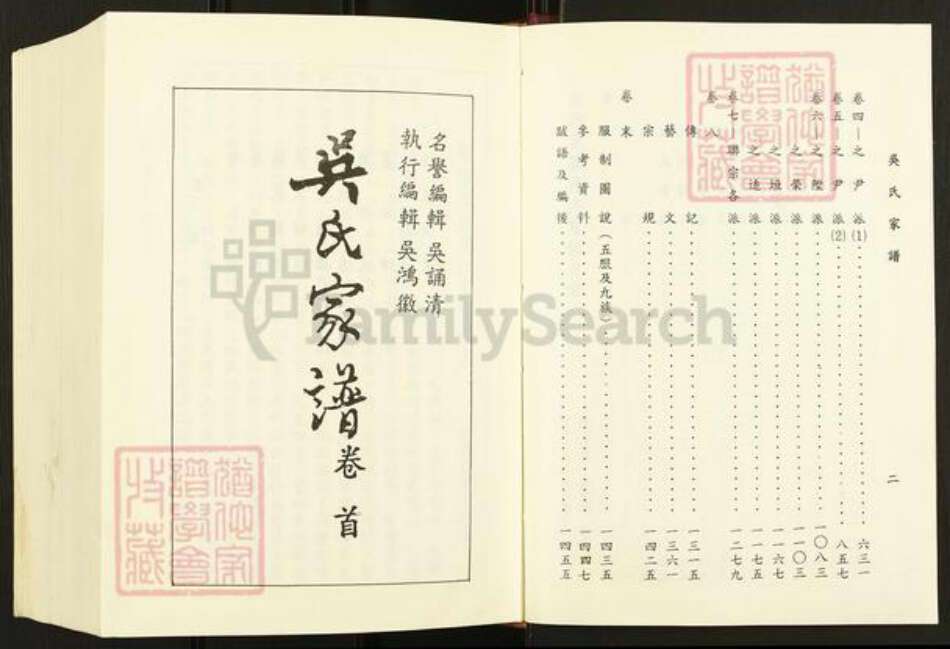 吳氏家譜 二
卷四—之尹派(1)……六三一
卷五—之尹派(2)……八五七
卷六—之陞派……一〇八三
之榮派……一一〇三
之垣派……一一六七
之達派……一一七五
卷七—聯宗各派……一二七九
卷八
傳記……一三一五
藝文……一三六一
宗規……一四二五
卷末
服制圖說(五服及九族)……一四三五
參考資料……一四四七
跋語及編後……一四五五
猶他家
譜學會
收藏
名譽編輯 吳誦清
執行編輯 吳鴻徽
吳氏家譜 卷首
猶他家
譜學會
收藏
FamilySearch